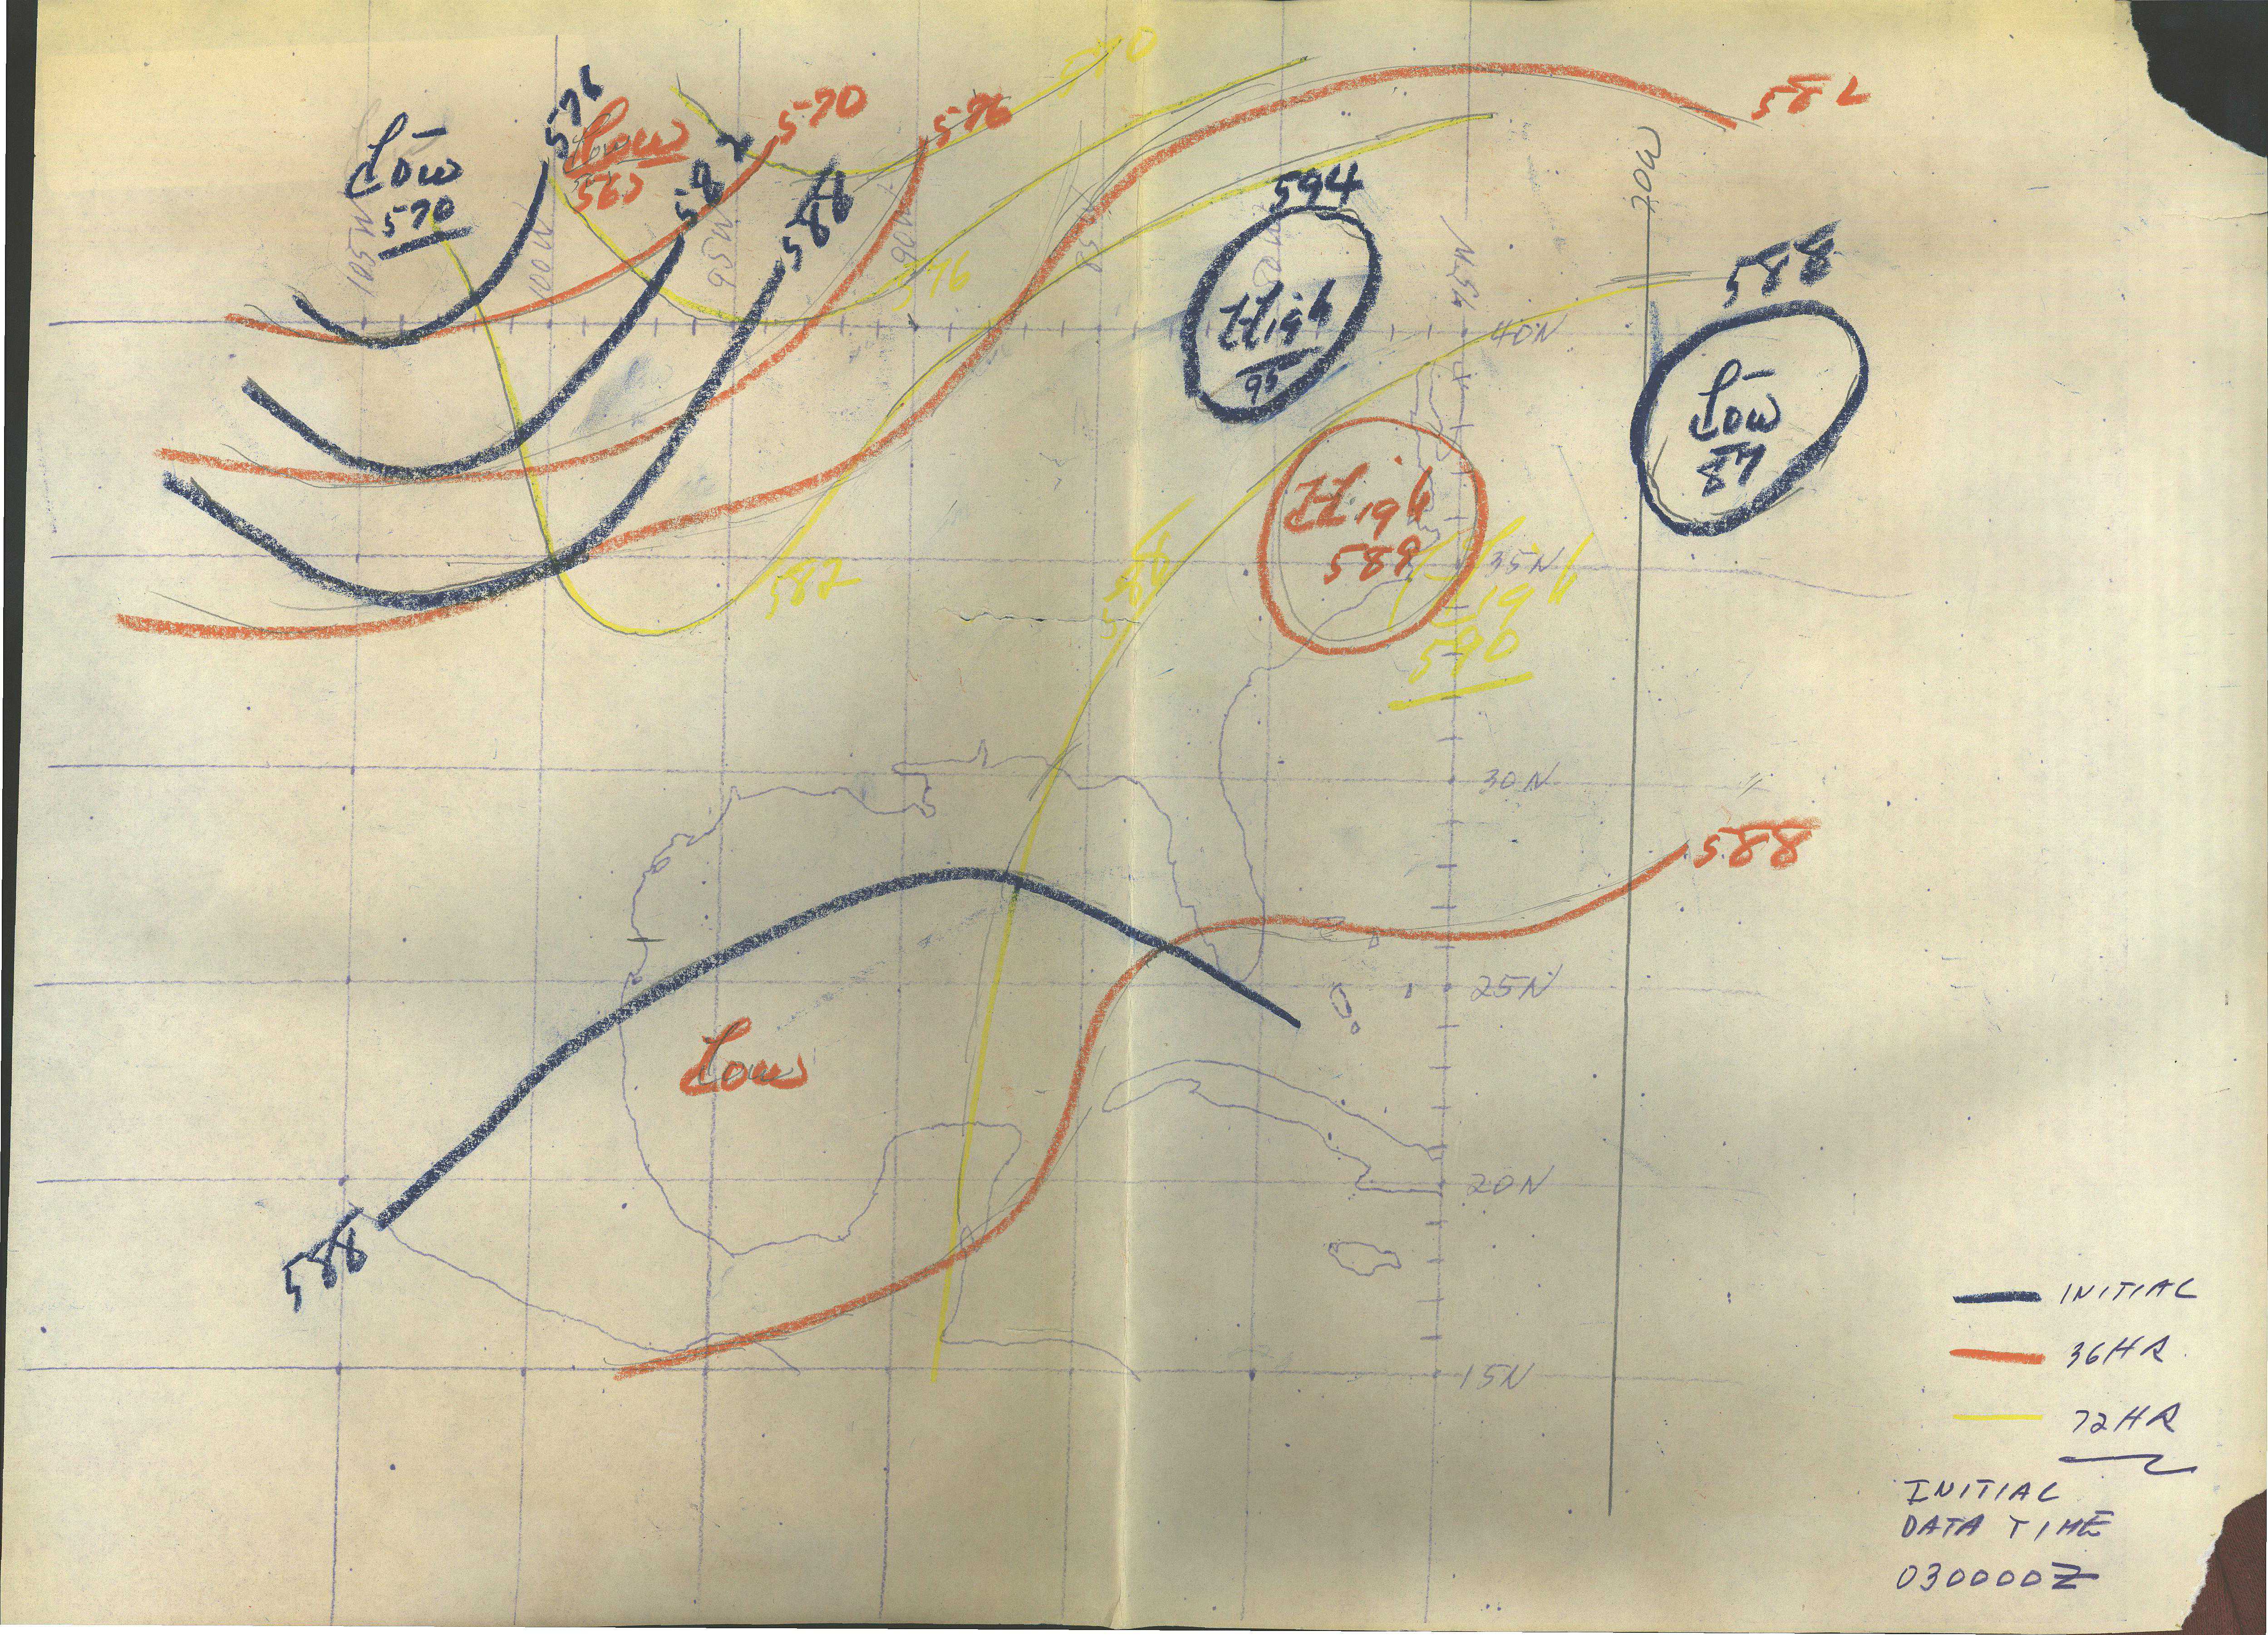 570
576
Low
570
Low
582
586
570
576
582
594
High
95
588
Low
87
105W
100W
95W
90W
85
80W
75W
70W
576
40N
High
589
35N
High
590
582
30N
588
25N
Low
20N
588
15N
INITIAL
36HR
72HR
INITIAL
DATA TIME
030000Z